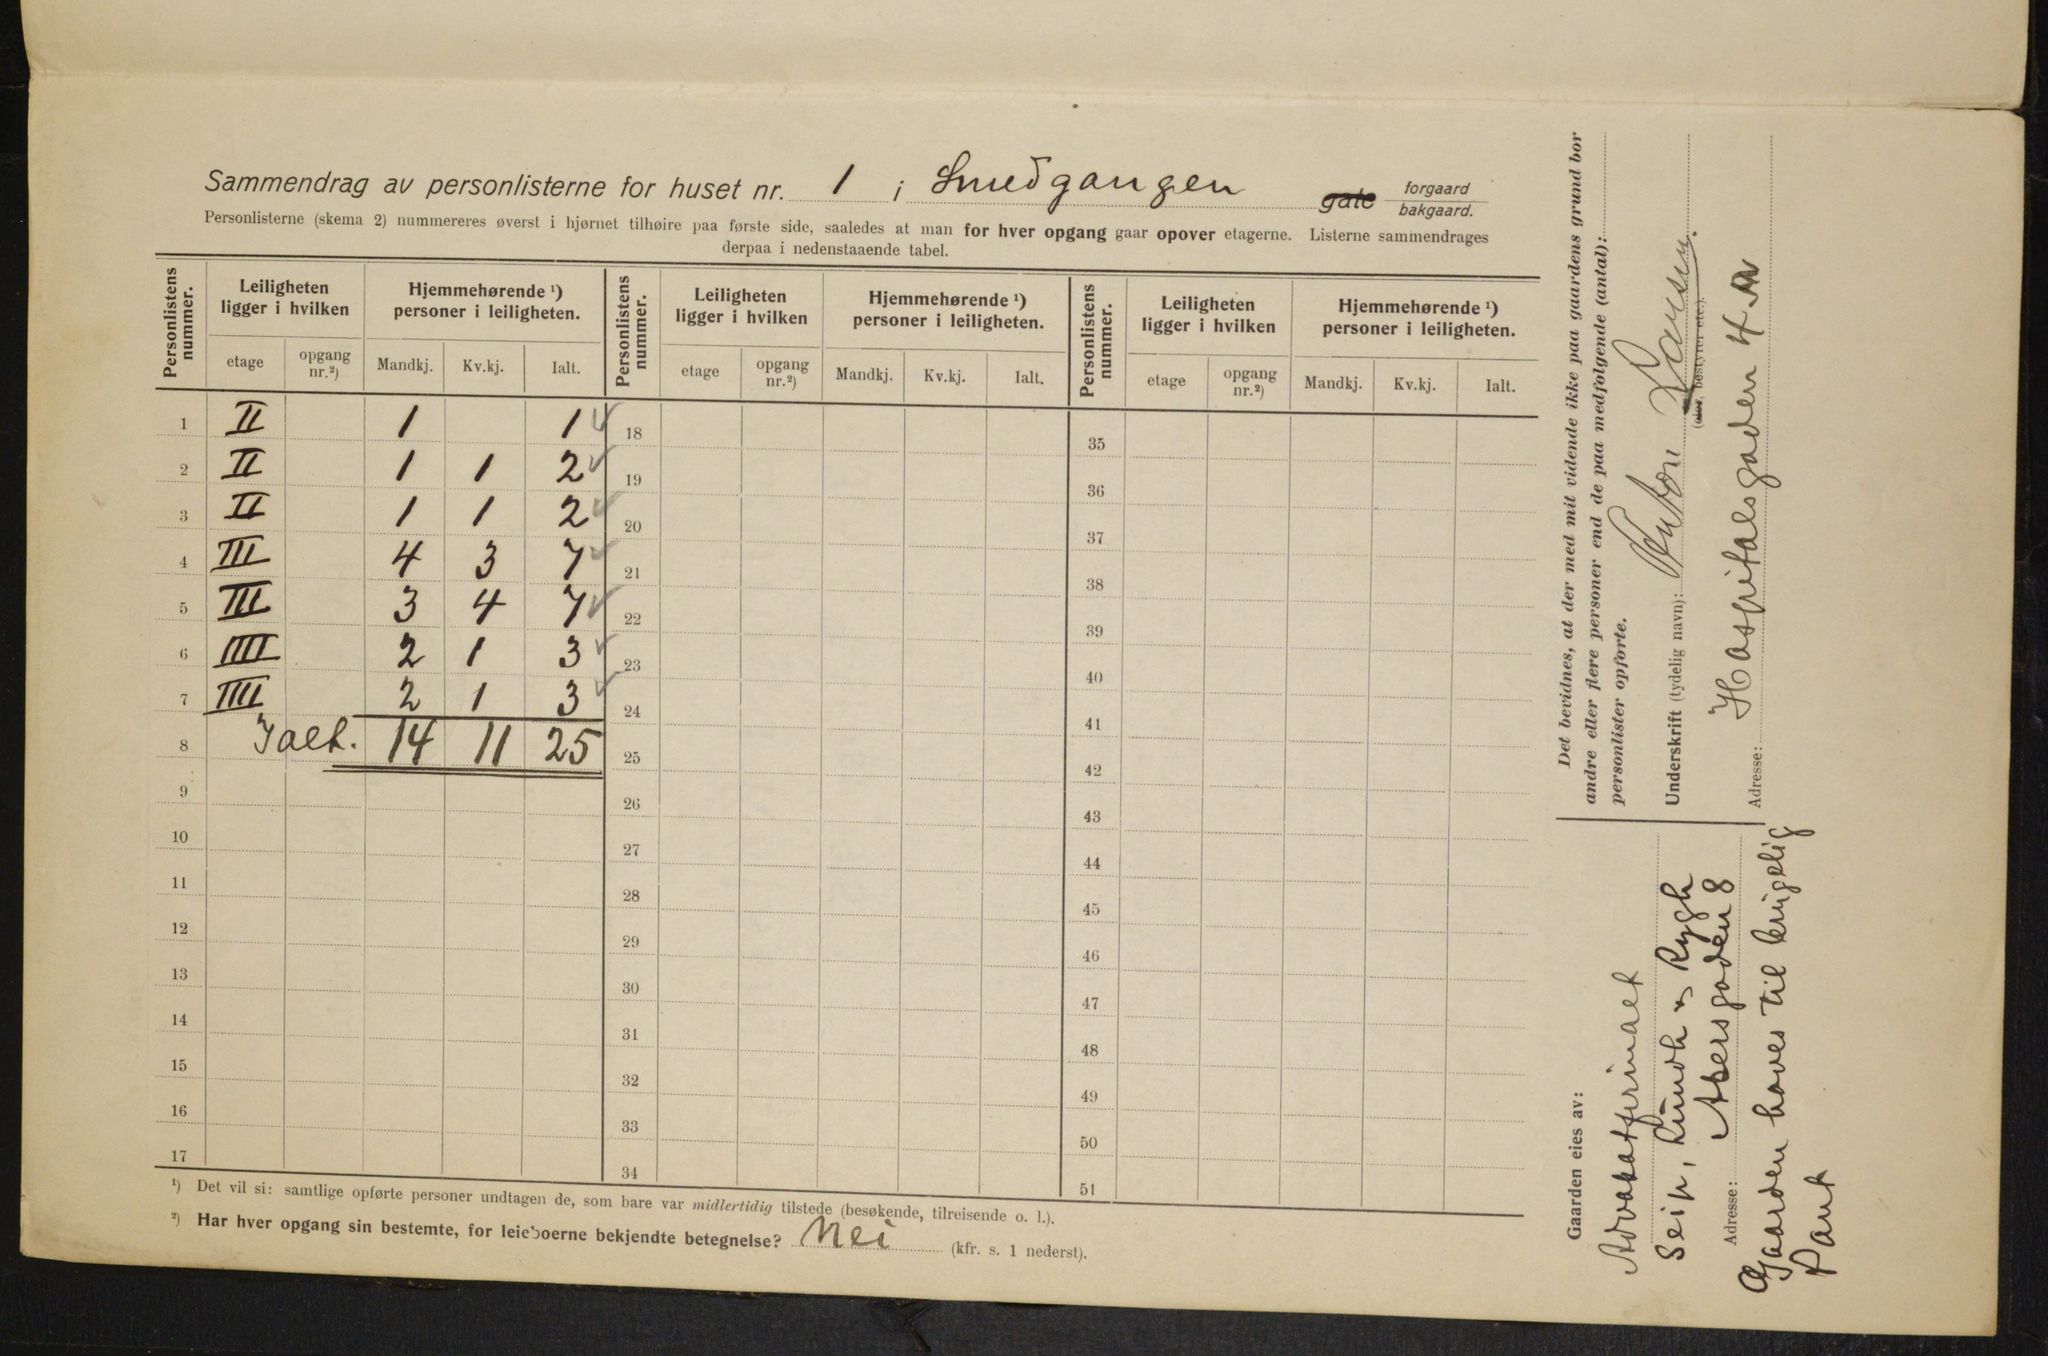 Sammendrag av personlisterne for huset nr. 1 i Smedgangen gate forgaard bakgaard.
Personlisterne (skema 2) nummereres øverst i hjørnet tilhøire paa første side, saaledes at man for hver opgang gaar opover etagerne. Listerne sammendrages
derpaa i nedenstaaende tabel.
Personlistens nummer. Leiligheten ligger i hvilken Hjemmehørende ¹) personer i leiligheten. Personlistens nummer. Leiligheten ligger i hvilken Hjemmehørende ¹) personer i leiligheten. Personlistens nummer. Leiligheten ligger i hvilken Hjemmehørende ¹) personer i leiligheten.
etage opgang nr.²) Mandkj. Kv.kj. Ialt. etage opgang nr.²) Mandkj. Kv.kj. Ialt. etage opgang nr.²) Mandkj. Kv.kj. Ialt.
1 II 1 1 18 35
2 II 1 1 2 19 36
3 II 1 1 2 20 37
4 III 4 3 7 21 38
5 III 3 4 7 22 39
6 IIII 2 1 3 23 40
7 IIII 2 1 3 24 41
8 Ialt. 14 11 25 25 42
9 26 43
10 27 44
11 28 45
12 29 46
13 30 47
14 31 48
15 32 49
16 33 50
17 34 51
¹) Det vil si: samtlige opførte personer undtagen de, som bare var midlertidig tilstede (besøkende, tilreisende o. l.).
²) Har hver opgang sin bestemte, for leieboerne bekjendte betegnelse? Nei (kfr. s. 1 nederst).
Det bevidnes, at der med mit vidende ikke paa gaardens grund bor
andre eller flere personer end de paa medfølgende (antal):
personlister opførte.
Underskrift (tydelig navn): Anton Larsen.
(eier, bestyrer etc.).
Adresse: Hospitalsgaden 4
Gaarden eies av:
Advokatfirmaet
Lundh & Rygh
Adresse: Akersgaden 8
Gaarden haves til
Pant